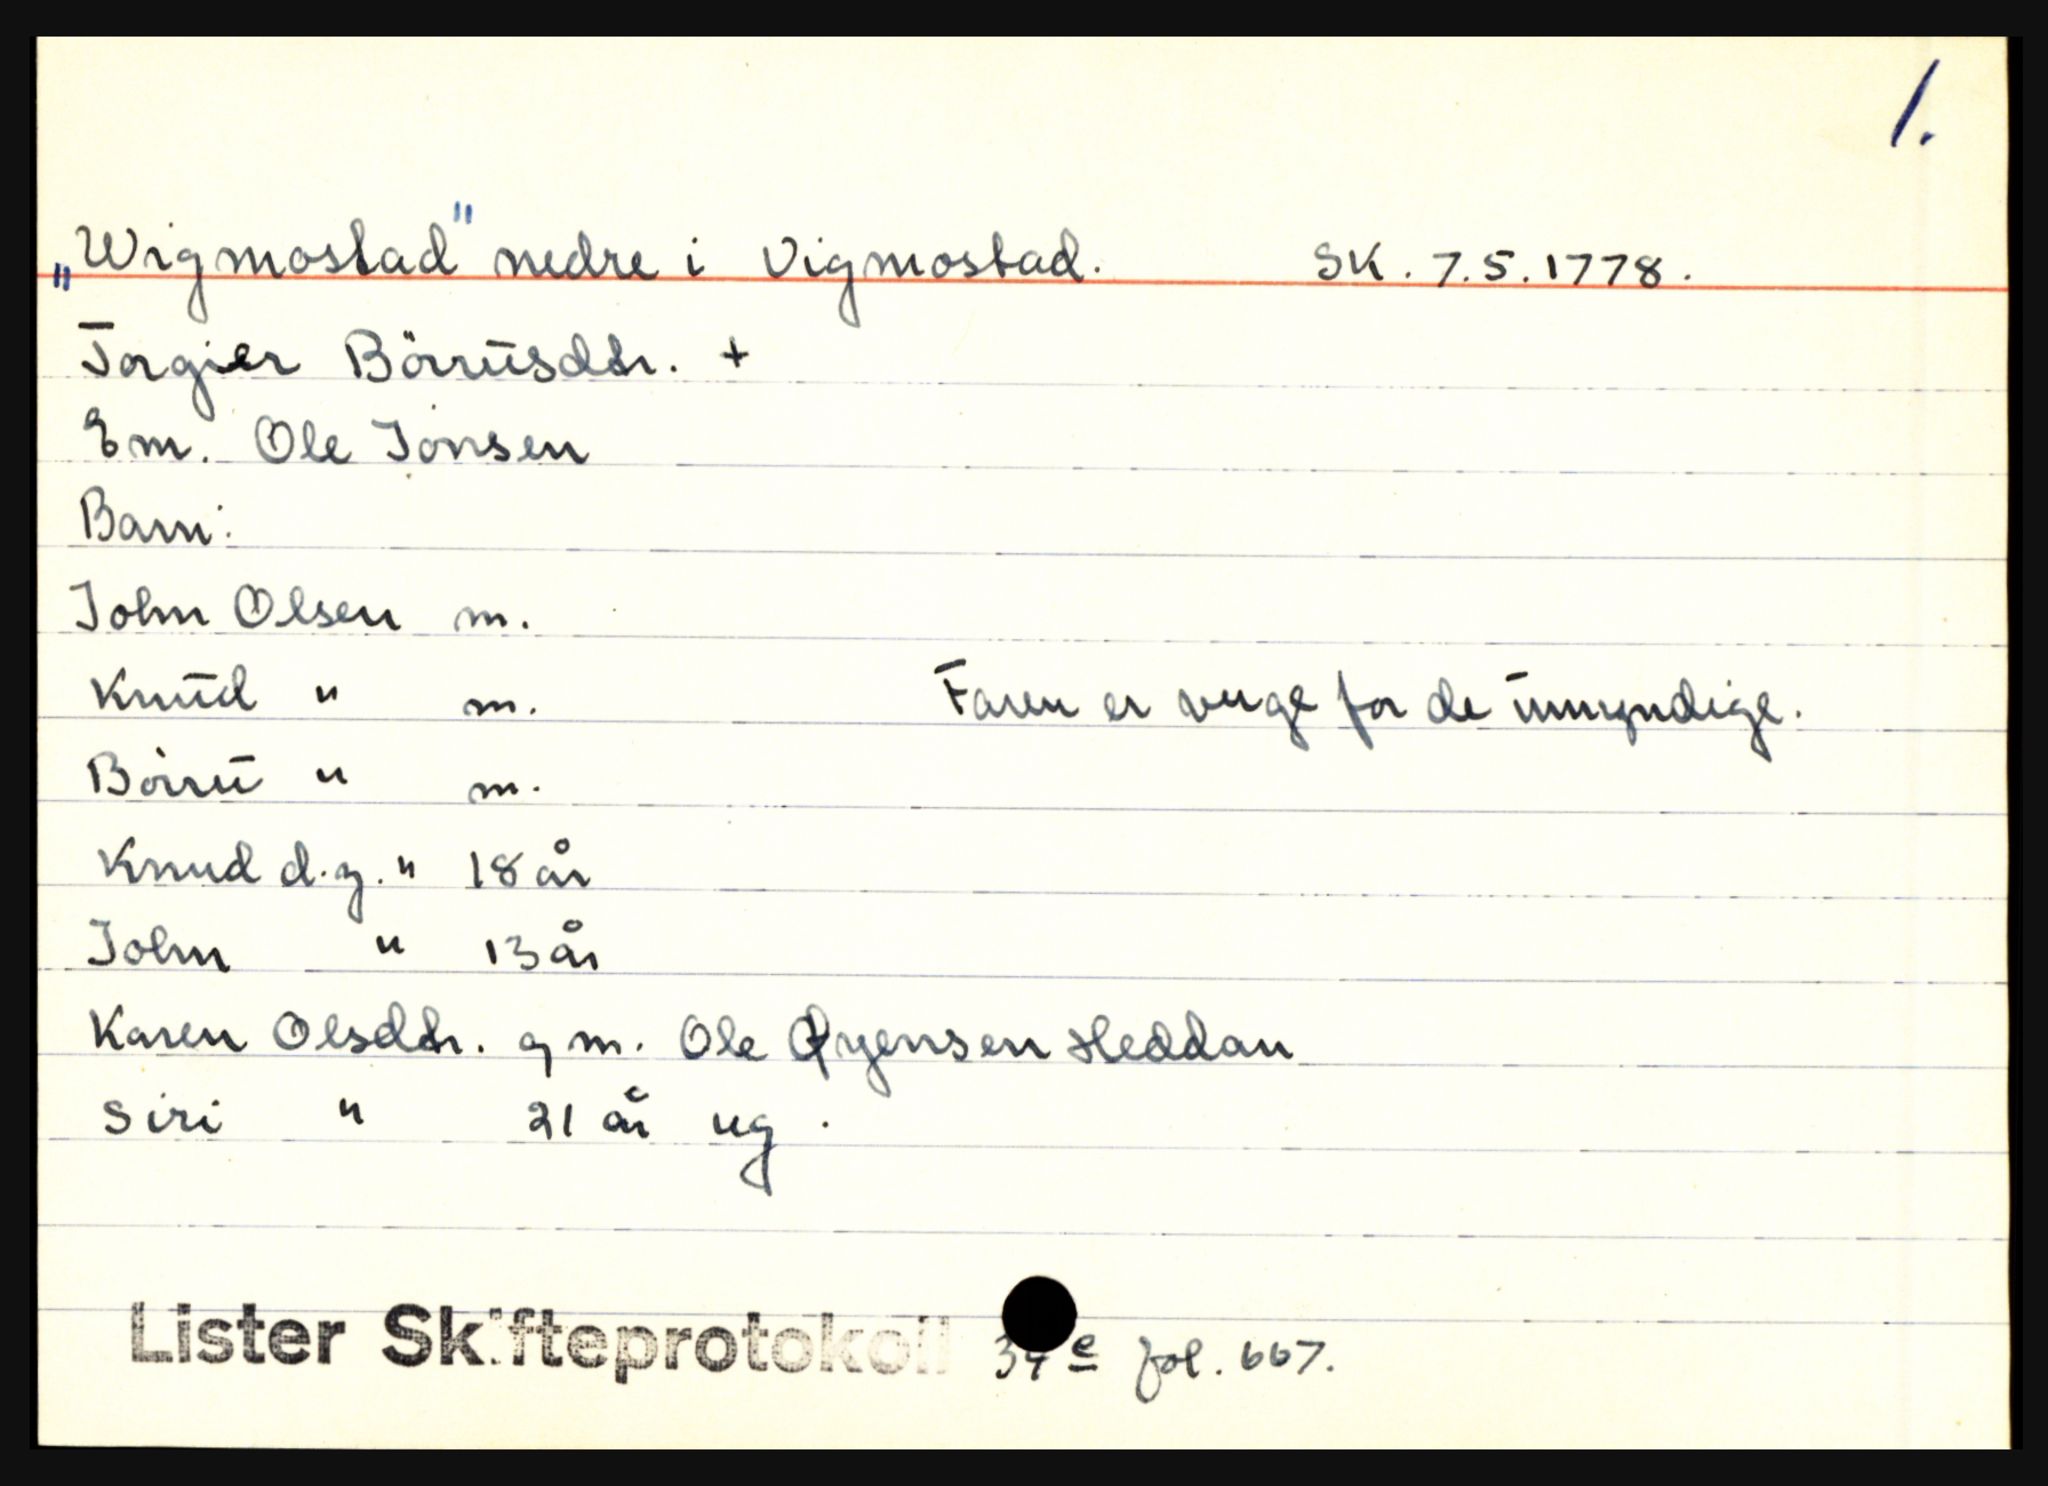 1.
„Wigmostad" nedre i Vigmostad. SK. 7.5.1778.
Torgier Börrusdtr. +
Em. Ole Jonsen
Barn:
John Olsen m.
Knud " m. Faren er verge for de umyndige.
Börru " m.
Knud d.y. " 18 år
John " 13 år
Karen Olsdtr. g m. Ole Øyensen Heddan
Siri " 21 år ug.
Lister Skifteprotokoll 34 e fol. 667.